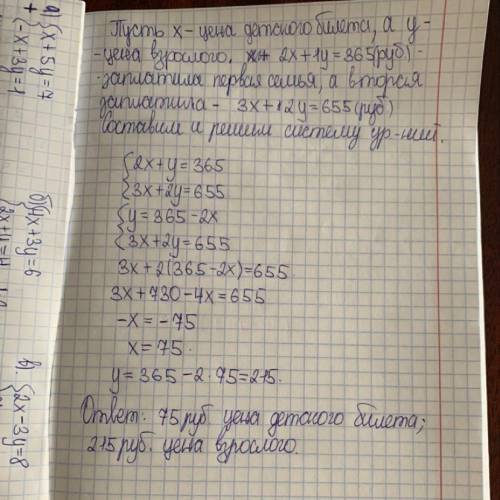 Пусть x - цена детского билета, а y-
-цена взрослого. 2x+1y=365(руб)-
-заплатила первая семья, а вторая
заплатила - 3x+2y=655(руб)
Составим и решим систему ур-ний.
{2x+y=365
{3x+2y=655
{y=365-2x
{3x+2y=655
3x+2(365-2x)=655
3x+730-4x=655
-x=-75
x=75
y=365-2·75=215.
Ответ: 75 руб. цена детского билета;
215 руб. цена взрослого.
а) {x+5y=7
+ {-x+3y=1
б) {4x+3y=6
{2x+y=4
в). {2x-3y=8